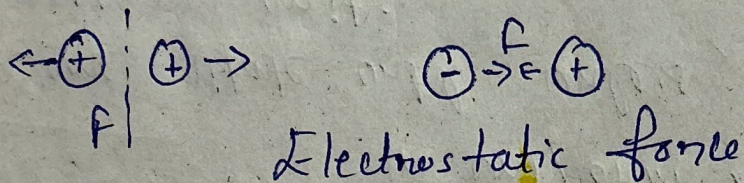 + + F
- F +
Electrostatic force